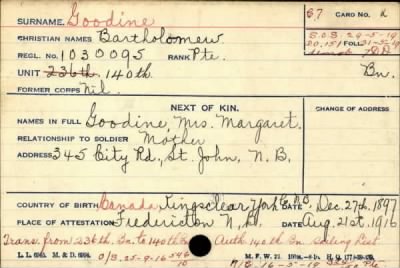 SURNAME. Goodine 67 CARD NO. K
CHRISTIAN NAMES Bartholomew S.O.S. 29-5-19
REGL. NO. 1030095 RANK Pte. 20.151 FOLL. 31-5-19
UNIT 236th 140th Bn.
FORMER CORPS Nil.
NEXT OF KIN. CHANGE OF ADDRESS
NAMES IN FULL Goodine, Mrs. Margaret.
RELATIONSHIP TO SOLDIER Mother
ADDRESS 345 City Rd., St. John, N.B.
COUNTRY OF BIRTH Canada, Kingsclear York Co. N.B. DATE Dec. 27th 1897
PLACE OF ATTESTATION Fredericton N.B. DATE Aug. 21st 1916
Trans. from 236th. Bn. to 140th Bn Auth 140th Bn. Sailing List
L. L. M. & D. M. F. W. 22.
O/S. 25-9-16 546/10